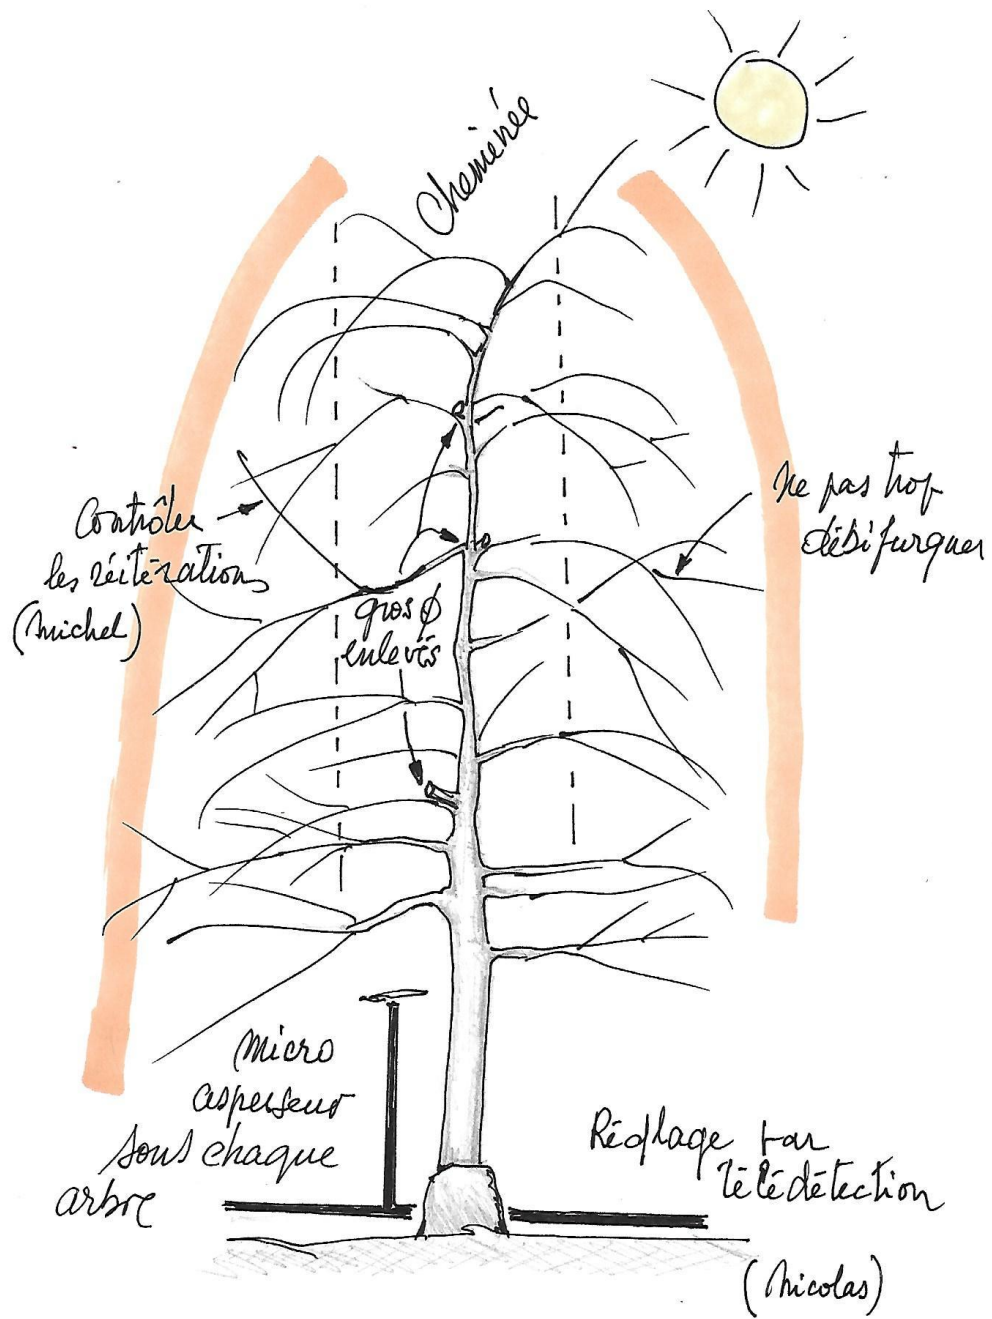 Cheminée
Contrôler
les réitérations
(Michel)
Ne pas trop
débifurquer
gros ϕ
enlevés
micro
asperseur
sous chaque
arbre
Réglage par
télédétection
(Nicolas)